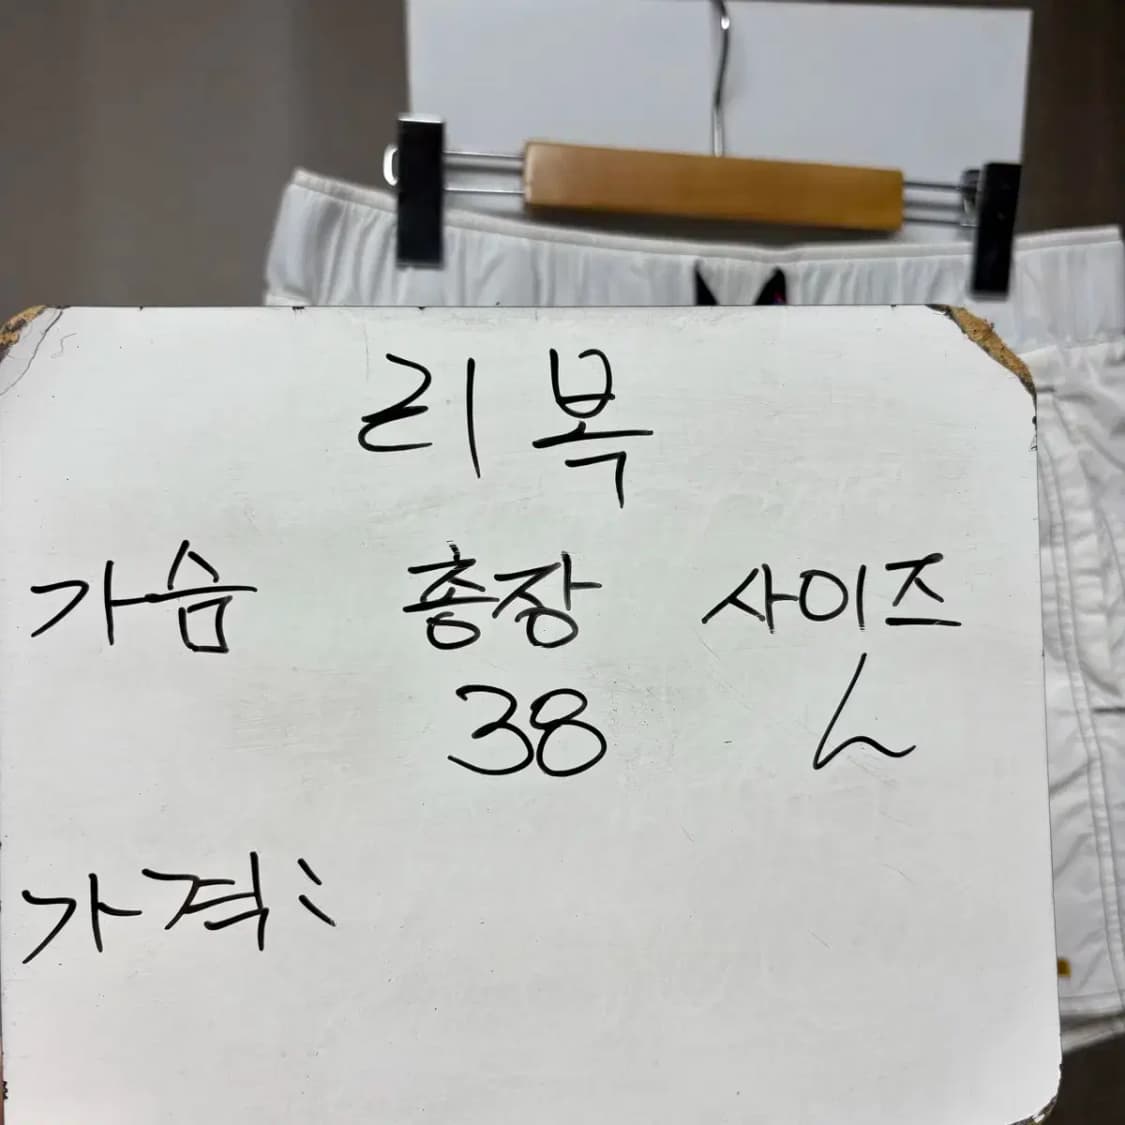 리복
가슴 총장 사이즈
38 L
가격: